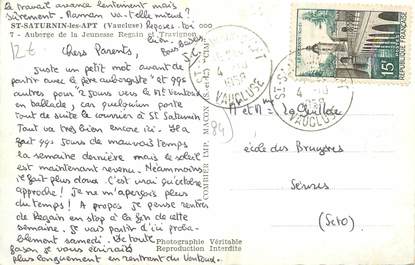 Le travail avance lentement mais
sûrement. Maman va-t-elle mieux ?
ST-SATURNIN-les-APT (Vaucluse)
7 - Auberge de la Jeunesse Regain et Travignon
Reçois-toi 000
bien
Bons baisers
12€
Chers Parents,
Juste un petit mot avant de
partir avec le père aubergiste et 99s
autres pour 2 jours vers le Mt Ventoux
en ballade, car quelqu'un porte
tout de suite le courrier à St Saturnin
Tout va très bien encore ici. Il a
fait 99s jours de mauvais temps
la semaine dernière mais le soleil
est maintenant revenu. Néanmoins
il fait plus doux. C'est vrai qu'octobre
approche ! Je ne m'aperçois plus
du temps ! A propos je pense rentrer
de Regain en stop à la fin de cette
semaine. Je vais partir d'ici proba-
blement samedi. De toute
façon je vous écrirai
plus longuement en rentrant du Ventoux.
COMBIER IMP. MACON (S.-et-L.) "CIM"
84
Photographie Véritable
Reproduction Interdite
ST-SATURNIN-D'APT
4 -10
1956
VAUCLUSE
15F
M et Mme
école des Bruyères
Sèvres
(S et O)